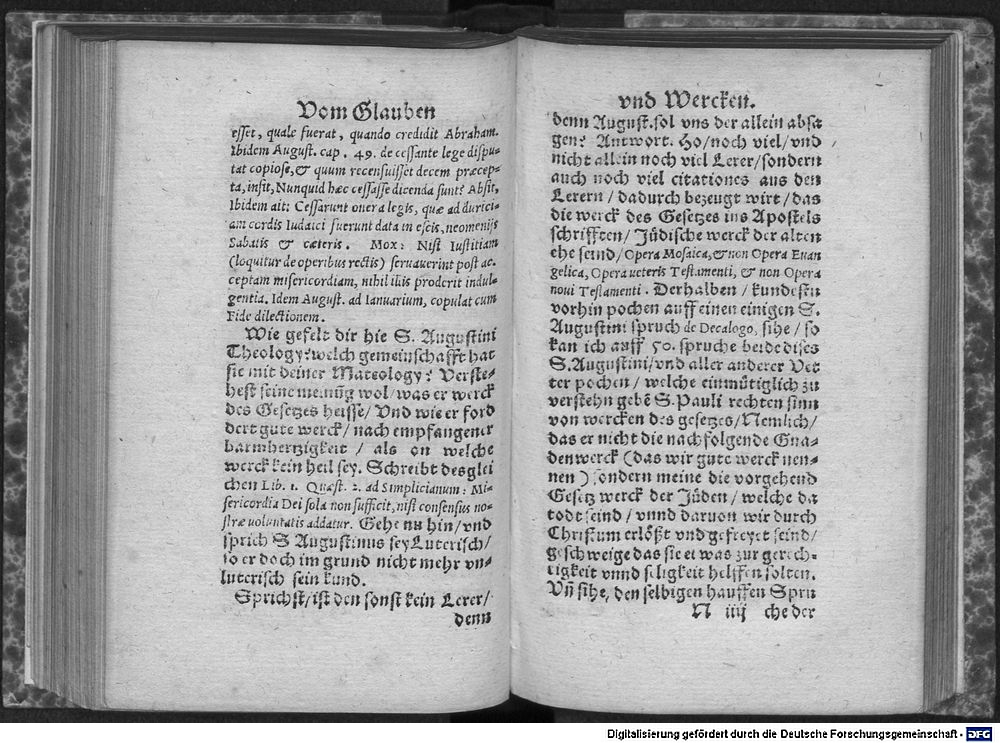 Vom Glauben
esset, quale fuerat, quando credidit Abraham.
Ibidem August. cap. 49. de cessante lege dispu-
tat copiose, & quum recensuisset decem præcep-
ta, insit, Nunquid hæc cessasse dicenda sunt? Absit,
Ibidem ait: Cessarunt onera legis, quæ ad durici-
am cordis Iudaici fuerunt data in escis, neomenijs
Sabatis & cæteris. Mox: Nisi Iustitiam
(loquitur de operibus rectis) seruauerint post ac-
ceptam misericordiam, nihil illis proderit indul-
gentia. Idem August. ad Ianuarium, copulat cum
Fide dilectionem.
Wie gefelt dir hie S. Augustini
Theology? welch gemeinschafft hat
sie mit deiner Mateology? Verste-
hest seine meinũg wol/ was er werck
des Gesetzes heisse/ Vnd wie er ford
dert gute werck/ nach empfangener
barmhertzigkeit / als on welche
werck kein heil sey. Schreibt desglei
chen Lib. 1. Quæst. 2. ad Simplicianum: Mi-
sericordia Dei sola non sufficit, nisi consensus no-
stræ voluntatis addatur. Gehe nu hin/ vnd
sprich S Augustinus sey Luterisch/
so er doch im grund nicht mehr vn-
luterisch sein kund.
Sprichst/ ist den sonst kein Lerer/
denn
vnd Wercken.
denn August. sol vns der allein absa
gen? Antwort. Ho/ noch viel/ vnd
nicht allein noch viel Lerer/ sondern
auch noch viel citationes aus den
Lerern / dadurch bezeugt wirt/ das
die werck des Gesetzes ins Apostels
schrifften/ Jüdische werck der alten
ehe seind/ Opera Mosaica, & non Opera Euan
gelica, Opera ueteris Testamenti, & non Opera
noui Testamenti. Derhalben / kundestu
vorhin pochen auff einen einigen S.
Augustini spruch de Decalogo, sihe / so
kan ich auff 50. spruche beide dises
S. Augustini/ vnd aller anderer Vet
ter pochen / welche einmütiglich zu
verstehn gebẽ S. Pauli rechten sinn
von wercken des gesetzes/ Nemlich/
das er nicht die nachfolgende Gna-
denwerck (das wir gute werck nen-
nen) sondern meine die vorgehend
Gesetz werck der Jüden / welche da
todt seind / vnnd daruon wir durch
Christum erlößt vnd gefreyet seind/
geschweige das sie etwas zur gerech-
tigkeit vnnd seligkeit helffen solten.
Vñ sihe, den selbigen hauffen Spru
N iiij che der
Digitalisierung gefördert durch die Deutsche Forschungsgemeinschaft - DFG